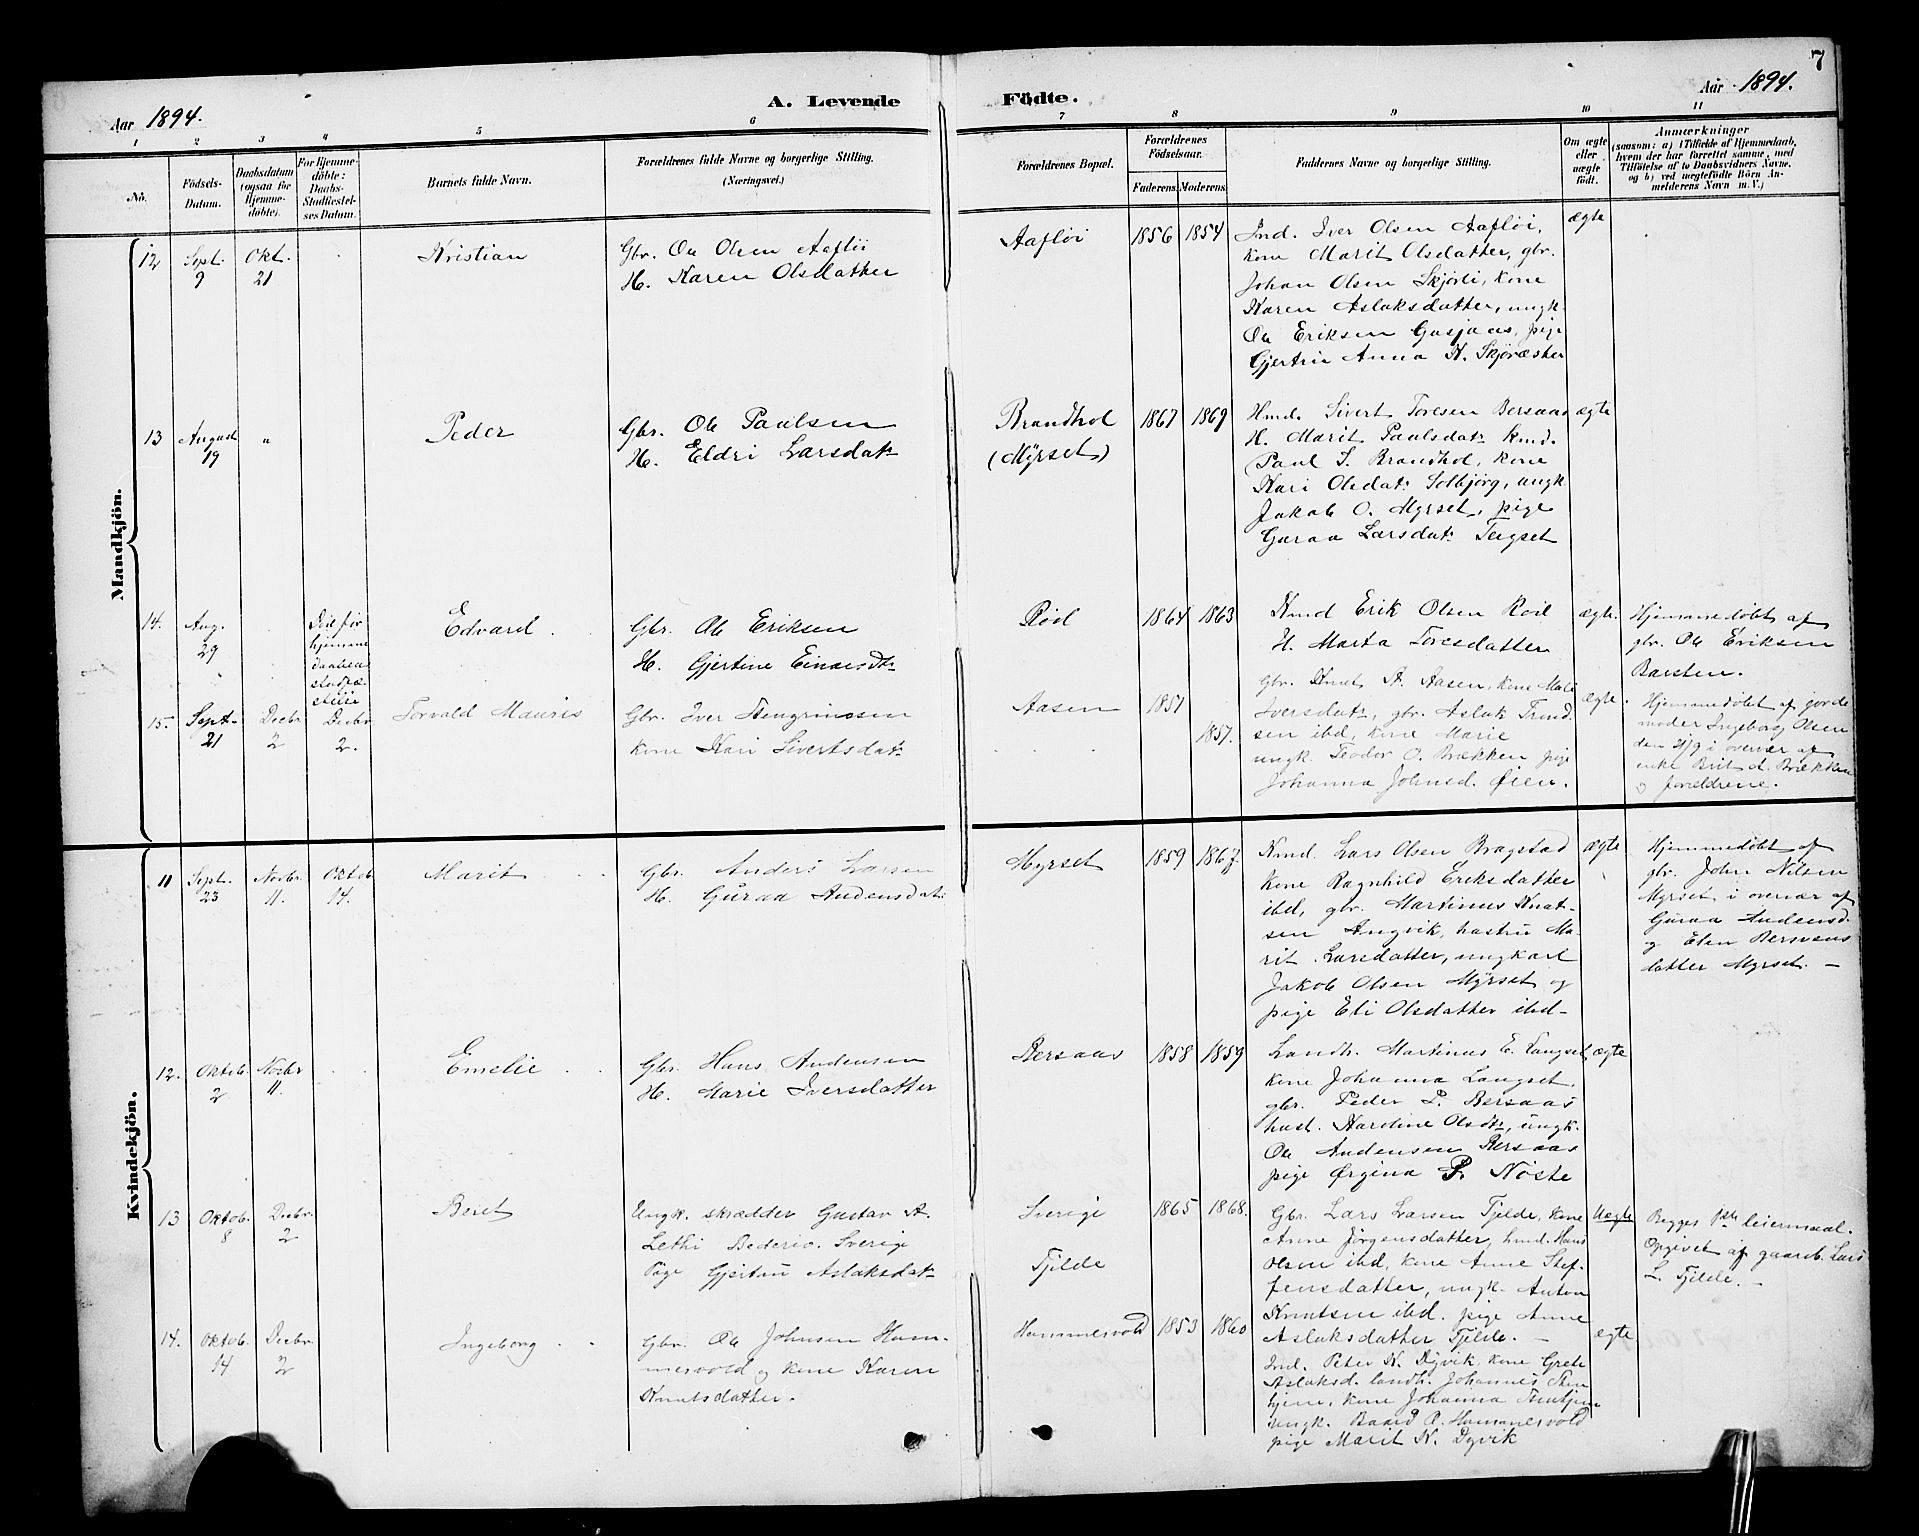 7
Aar 1894.
A. Levende Födte.
Aar 1894.
1 2 3 4 5 6 7 8 9 10 11
No.
Födsels-Datum.
Daabsdatum (ogsaa for Hjemme-døbte).
For Hjemme-döbte: Daabs-Stadfæstel-ses Datum.
Barnets fulde Navn.
Forældrenes fulde Navne og borgerlige Stilling. (Næringsvei.)
Forældrenes Bopæl.
Forældrenes Födselsaar.
Faderens. Moderens.
Faddernes Navne og borgerlige Stilling.
Om ægte eller uægte födt.
Anmærkninger
(saasom: a) i Tilfælde af Hjemmedaab, hvem der har forrettet samme, med Tilföielse af to Daabsvidners Navne. og b) ved uægtefödte Börn An-melderens Navn m. V.)
Mandkjön.
12 Sept. 9 Okt. 21
Kristian
Gbr. Ole Olsen Aafløi
H. Karen Olsdatter
Aafløi
1856 1854
Ind. Iver Olsen Aafløi,
kone Marit Olsdatter, gbr.
Johan Olsen Skjørli, kone
Karen Aslaksdatter, ungk.
Ole Eriksen Gasjaas, pige
Gjertin Anna K. Skjøræster
ægte
13 August 19 "
Peder
Gbr. Ole Paulsen
H. Eldri Larsdatr
Brandhol
(Myrset)
1867 1869
Hmd. Sivert Toresen Bersaas
H. Marit Paulsdatr kmd.
Paul S. Brandhol, kone
Kari Olsdatr Solbjørg, ungk.
Jakob O. Myrset, pige
Guraa Larsdatr Teigset
ægte
14. Aug. 29
Død før
hjemme
daabens
stadfæ-
stelse
Edvard
Gbr. Ole Eriksen
H. Gjertine Einarsdtr
Rød
1864 1863
Kmd Erik Olsen Roil
H. Marta Toresdatter
ægte.
Hjemmedøbt af
gbr. Ole Eriksen
Barsten.
15. Sept. 21 Decbr 2 Decbr 2.
Torvald Mauris
Gbr. Iver Stengrimssen
kone Kari Sivertsdatr
Aasen
1851
1857.
Gbr. Knut A. Aasen, kone Mali
Iversdatr, gbr. Aslak Trond-
sen ibd, kone Marie
ungk. Teodor O. Brækken pige
Johanna Johnsd. Øien.
ægte.
Hjemmedøbt af jorde
moder Ingeborg Olsen
den 21/9 i overvær af
enke Brit d. Brækken
og forældrene.
Kvindekjön.
11 Sept. 23 Novbr. 11. Oktob. 14.
Marit
Gbr. Anders Larsen
H. Guraa Andersdatr
Myrset
1859 1867.
Kmd. Lars Olsen Bragstad
kone Ragnhild Eriksdatter
ibd, gbr. Martinus Knut-
sen Angvik, hustru Ma-
rit Larsdatter, ungkarl
Jakob Olsen Myrset og
pige Eli Olsdatter ibd-
ægte
Hjemmedøbt af
gbr. John Nilsen
Myrset i overvær af
Guraa Andersd.
og Elen Bersvens
datter Myrset. —
12. Oktob. 2 Novbr 11.
Emelie
Gbr. Hans Andersen
H. Marie Iversdatter
Bersaas
1858 1859
Landh. Martinus E. Langset
kone Johanna Langset,
gbr. Peder P. Bersaas
hust. Kardine Olsdtr, ungk.
Ole Andersen Bersaas
pige Ørgina P. Nøste
ægte
13 Oktob. 8 Decbr. 2
Berit
Ungk. skrædder Gustav A.
Lethi Sverige
Pige Gjertine Aslaksdatr
Sverige
Tjelde
1865 1868.
Gbr. Lars Larsen Tjelde, kone
Anne Jörgensdatter, hmd. Hans
Olsen ibd, kone Anne Stef-
fensdatter, ungk. Anton
Knutsen ibd. pige Anne
Aslaksdatter Tjelde. —
Uægte
Begges 1ste leiermaal.
Opgivet af gaardb. Lars
L. Tjelde. —
14. Oktob. 14 Decbr 2
Ingeborg
Gbr. Ole Johnsen Ham-
mervold og kone Karen
Knutsdatter.
Hammervold
1853 1860
Ind. Peter N. Dyvik, kone Grete
Aslaksd. landh. Johannes Sten
hjem, kone Johanna
ungk. Baard O. Hammervold
pige Marit N. Dyvik
ægte